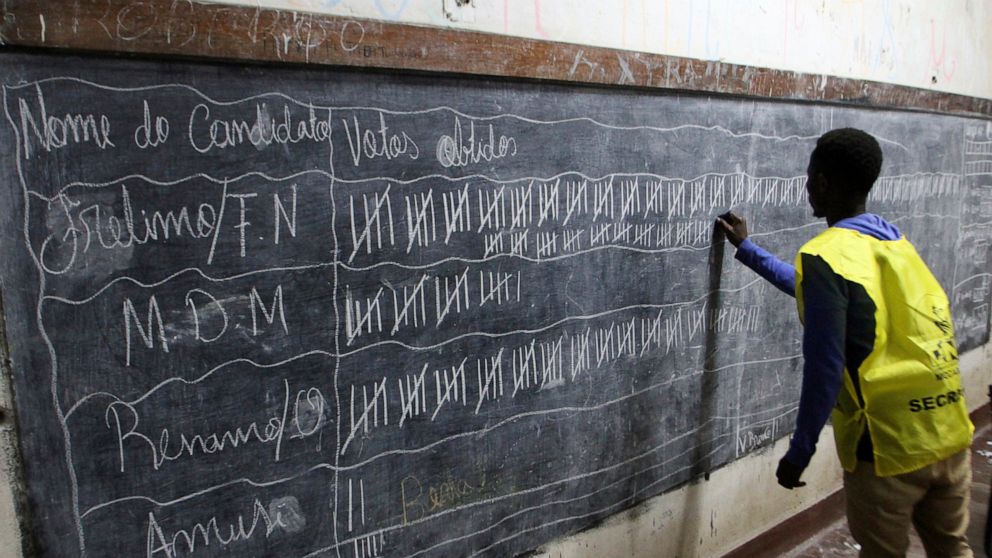 Nome do Candidato Votos obtidos
Frelimo/F.N
M.D.M
Renamo/O
Amusi
SECR